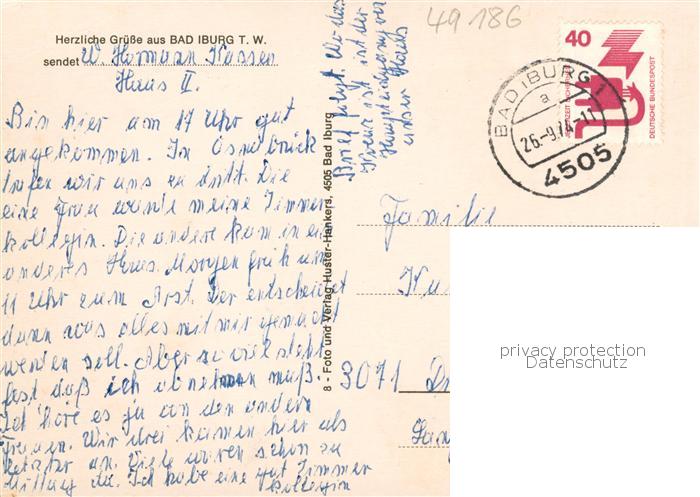 Herzliche Grüße aus BAD IBURG T. W.
sendet W. Hermann
Haus II.
Bin hier am 17 Uhr gut
angekommen. In Osnabrück
trafen wir uns zu dritt. Die
eine Frau wurde meine Zimmer
kollegin. Die andere kam in ein
anderes Haus. Morgen früh um
11 Uhr zum Arzt. Der entscheidet
dann was alles mit mir gemacht
werden soll. Aber so viel steht
fest daß ich abnehmen muß.
Ich höre es ja von den andern
Frauen. Wir drei kamen hier als
letzter an. Viele waren schon zu
Mittag da. Ich habe eine gut Zimmer
kollegin
Brief folgt. Wo das
Kreuz ist ist der
Haupteingang von
unser Haus
8 - Foto und Verlag Huster-Hankers, 4505 Bad Iburg
49186
40
DEUTSCHE BUNDESPOST
BAD IBURG 1
a
26.-9.74-11
4505
Familie
3071
privacy protection
Datenschutz